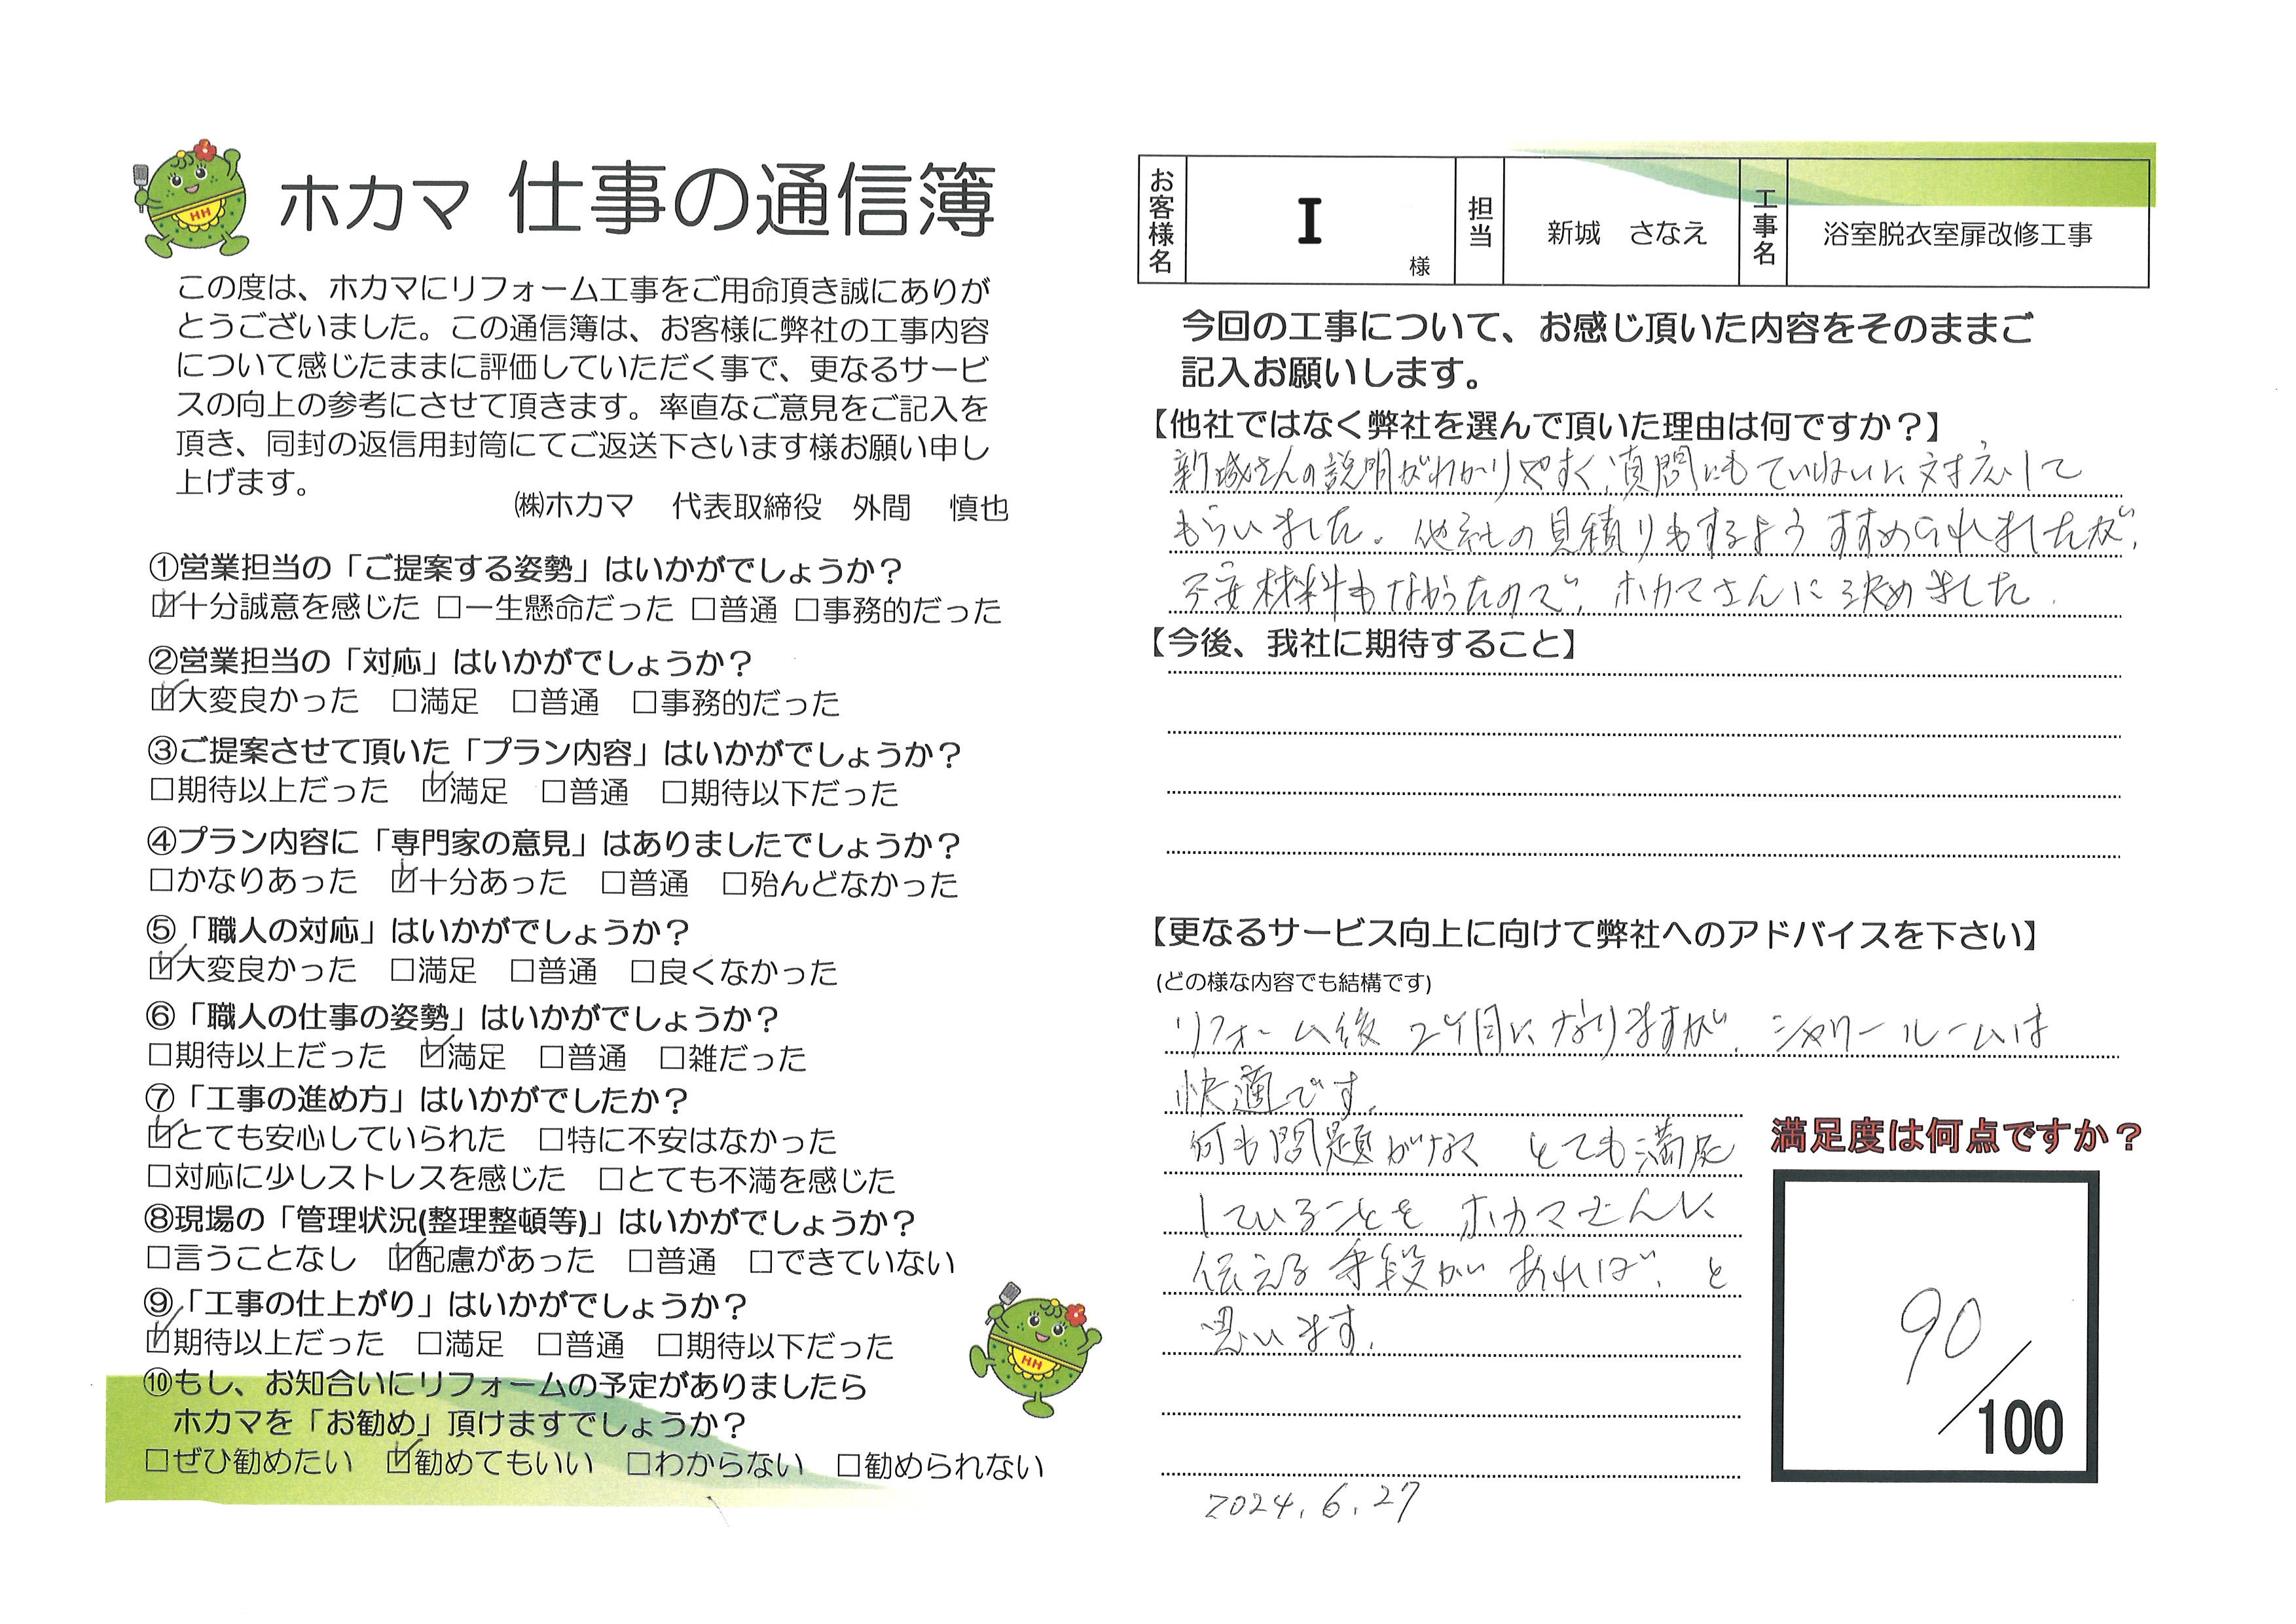 ホカマ 仕事の通信簿
この度は、ホカマにリフォーム工事をご用命頂き誠にありが
とうございました。この通信簿は、お客様に弊社の工事内容
について感じたままに評価していただく事で、更なるサービ
スの向上の参考にさせて頂きます。率直なご意見をご記入を
頂き、同封の返信用封筒にてご返送下さいます様お願い申し
上げます。
㈱ホカマ 代表取締役 外間 慎也
①営業担当の「ご提案する姿勢」はいかがでしょうか？
☑十分誠意を感じた □一生懸命だった □普通 □事務的だった
②営業担当の「対応」はいかがでしょうか？
☑大変良かった □満足 □普通 □事務的だった
③ご提案させて頂いた「プラン内容」はいかがでしょうか？
□期待以上だった ☑満足 □普通 □期待以下だった
④プラン内容に「専門家の意見」はありましたでしょうか？
□かなりあった ☑十分あった □普通 □殆んどなかった
⑤「職人の対応」はいかがでしょうか？
☑大変良かった □満足 □普通 □良くなかった
⑥「職人の仕事の姿勢」はいかがでしょうか？
□期待以上だった ☑満足 □普通 □雑だった
⑦「工事の進め方」はいかがでしたか？
☑とても安心していられた □特に不安はなかった
□対応に少しストレスを感じた □とても不満を感じた
⑧現場の「管理状況(整理整頓等)」はいかがでしょうか？
□言うことなし ☑配慮があった □普通 □できていない
⑨「工事の仕上がり」はいかがでしょうか？
☑期待以上だった □満足 □普通 □期待以下だった
⑩もし、お知合いにリフォームの予定がありましたら
ホカマを「お勧め」頂けますでしょうか？
□ぜひ勧めたい ☑勧めてもいい □わからない □勧められない
お客様名 I 様 担当 新城 さなえ 工事名 浴室脱衣室扉改修工事
今回の工事について、お感じ頂いた内容をそのままご
記入お願いします。
【他社ではなく弊社を選んで頂いた理由は何ですか？】
新城さんの説明がわかりやすく、質問にもていねいに対応して
もらいました。他社の見積りもするようすすめられましたが、
不安材料もなかったので、ホカマさんに決めました.
【今後、我社に期待すること】
【更なるサービス向上に向けて弊社へのアドバイスを下さい】
(どの様な内容でも結構です)
リフォーム後 2ケ月になりますが、シャワールームは
快適です.
何も問題がなく とても満足
していることを ホカマさんに
伝える手段が あれば、と
思います.
2024.6.27
満足度は何点ですか？
90/100
HH
HH